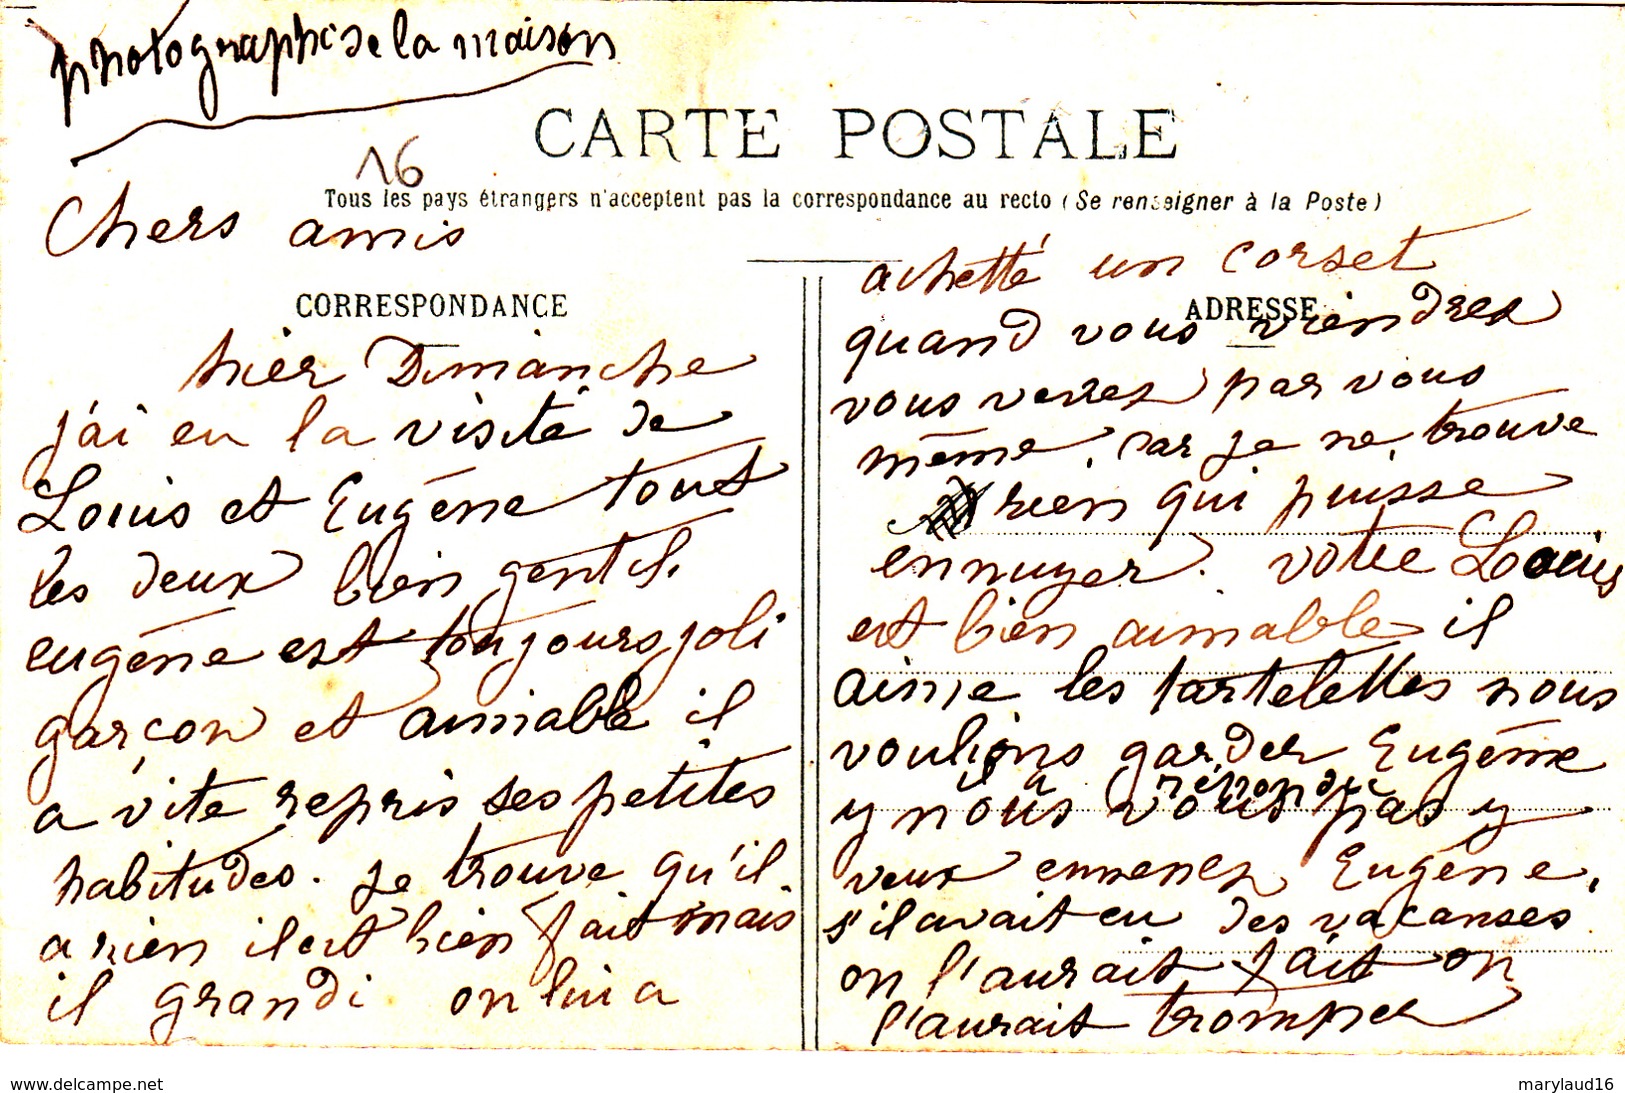 photographie de la maison
16
CARTE POSTALE
Tous les pays étrangers n'acceptent pas la correspondance au recto (Se renseigner à la Poste)
Chers amis
CORRESPONDANCE
hier Dimanche
j'ai eu la visite de
Louis et Eugène tout
les deux bien gentil.
eugène est toujours joli
garçon et aimable il
a vite repris ses petites
habitudes. je trouve qu'il
a rien il est bien fait mais
il grandi on lui a
ADRESSE
achetté un corset
quand vous viendrez
vous verrez par vous
même, car je ne trouve
rien qui puisse
ennuyer. votre Louis
est bien aimable il
aime les tartelettes nous
voulions garder Eugène
répondu
y nous vous pas y
veux emmenez Eugène,
s'il avait eu des vacanses
on l'aurait fait on
l'aurait tromper
www.delcampe.net
marylaud16